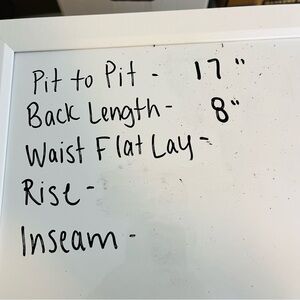 Pit to Pit - 17"
Back Length - 8"
Waist Flat Lay -
Rise -
Inseam -